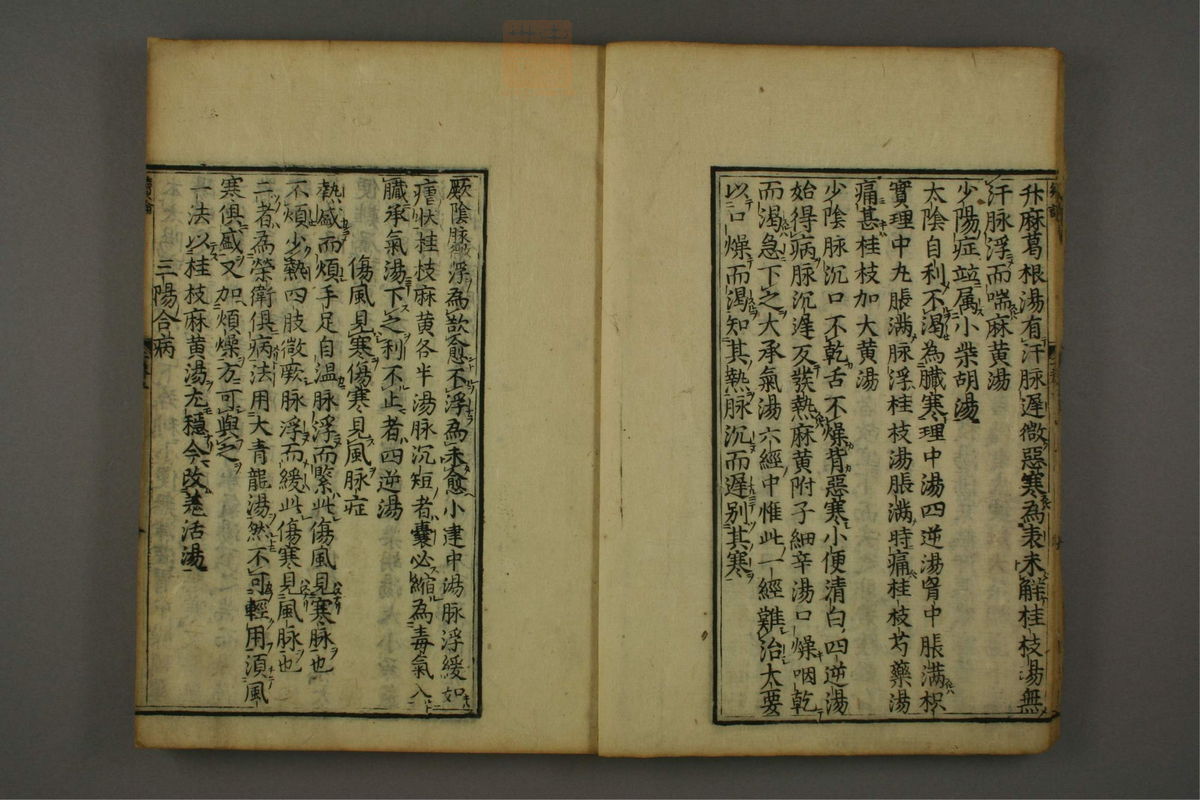 升麻葛根湯有汗脉遲微惡寒為表未解桂枝湯無
汗脉浮而喘麻黄湯
少陽症竝属小柴胡湯
太陰自利不渴為臓寒理中湯四逆湯胃中脹满枳
實理中丸脹满脉浮桂枝湯脹满時痛桂枝芍藥湯
痛甚桂枝加大黄湯
少陰脉沉口不乾舌不燥背惡寒小便清白四逆湯
始得病脉沉遲反發熱麻黄附子細辛湯口燥咽乾
而渴急下之大承氣湯六經中惟此一經難治太要
以口燥而渴知其熱脉沉而遲别其寒
厥陰脉微浮為欲愈不浮為未愈小建中湯脉浮緩如
瘧状桂枝麻黄各半湯脉沉短者囊必縮為毒氣入
臓承氣湯下之利不止者四逆湯
傷風見寒傷寒見風脉症
熱盛而煩手足自温脉浮而緊此傷風見寒脉也
不煩少熱四肢微厥脉浮而緩此傷寒見風脉也
二者為榮衛俱病法用大青龍湯然不可輕用須風
寒俱盛又加煩燥方可與之
一法以桂枝麻黄湯尤穩今改羗活湯
三陽合病